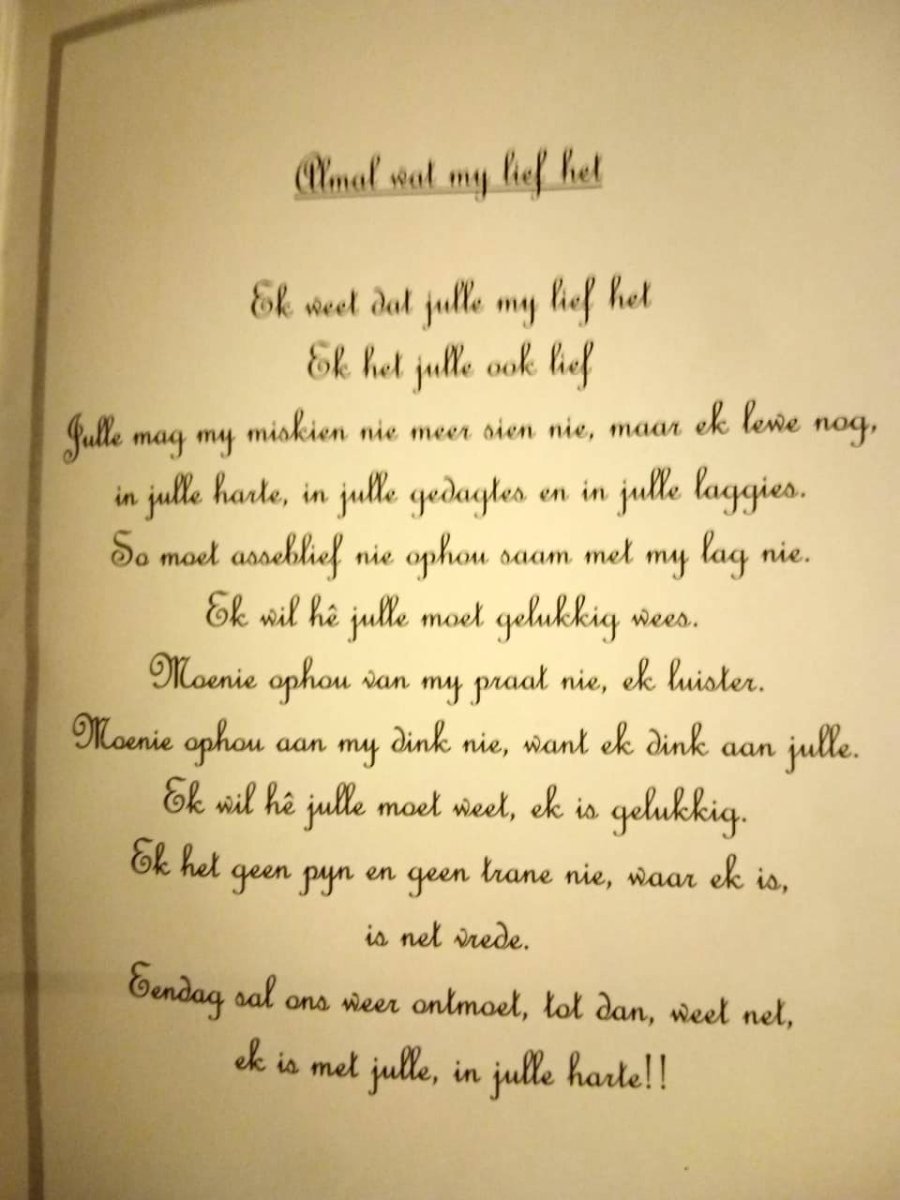 Almal wat my lief het
Ek weet dat julle my lief het
Ek het julle ook lief
Julle mag my miskien nie meer sien nie, maar ek lewe nog,
in julle harte, in julle gedagtes en in julle laggies.
So moet asseblief nie ophou saam met my lag nie.
Ek wil hê julle moet gelukkig wees.
Moenie ophou van my praat nie, ek luister.
Moenie ophou aan my dink nie, want ek dink aan julle.
Ek wil hê julle moet weet, ek is gelukkig.
Ek het geen pyn en geen trane nie, waar ek is,
is net vrede.
Eendag sal ons weer ontmoet, tot dan, weet net,
ek is met julle, in julle harte!!